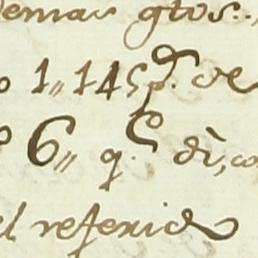 demas gtos..
1,,145 p.s de
6,, q.e di, co
el referido